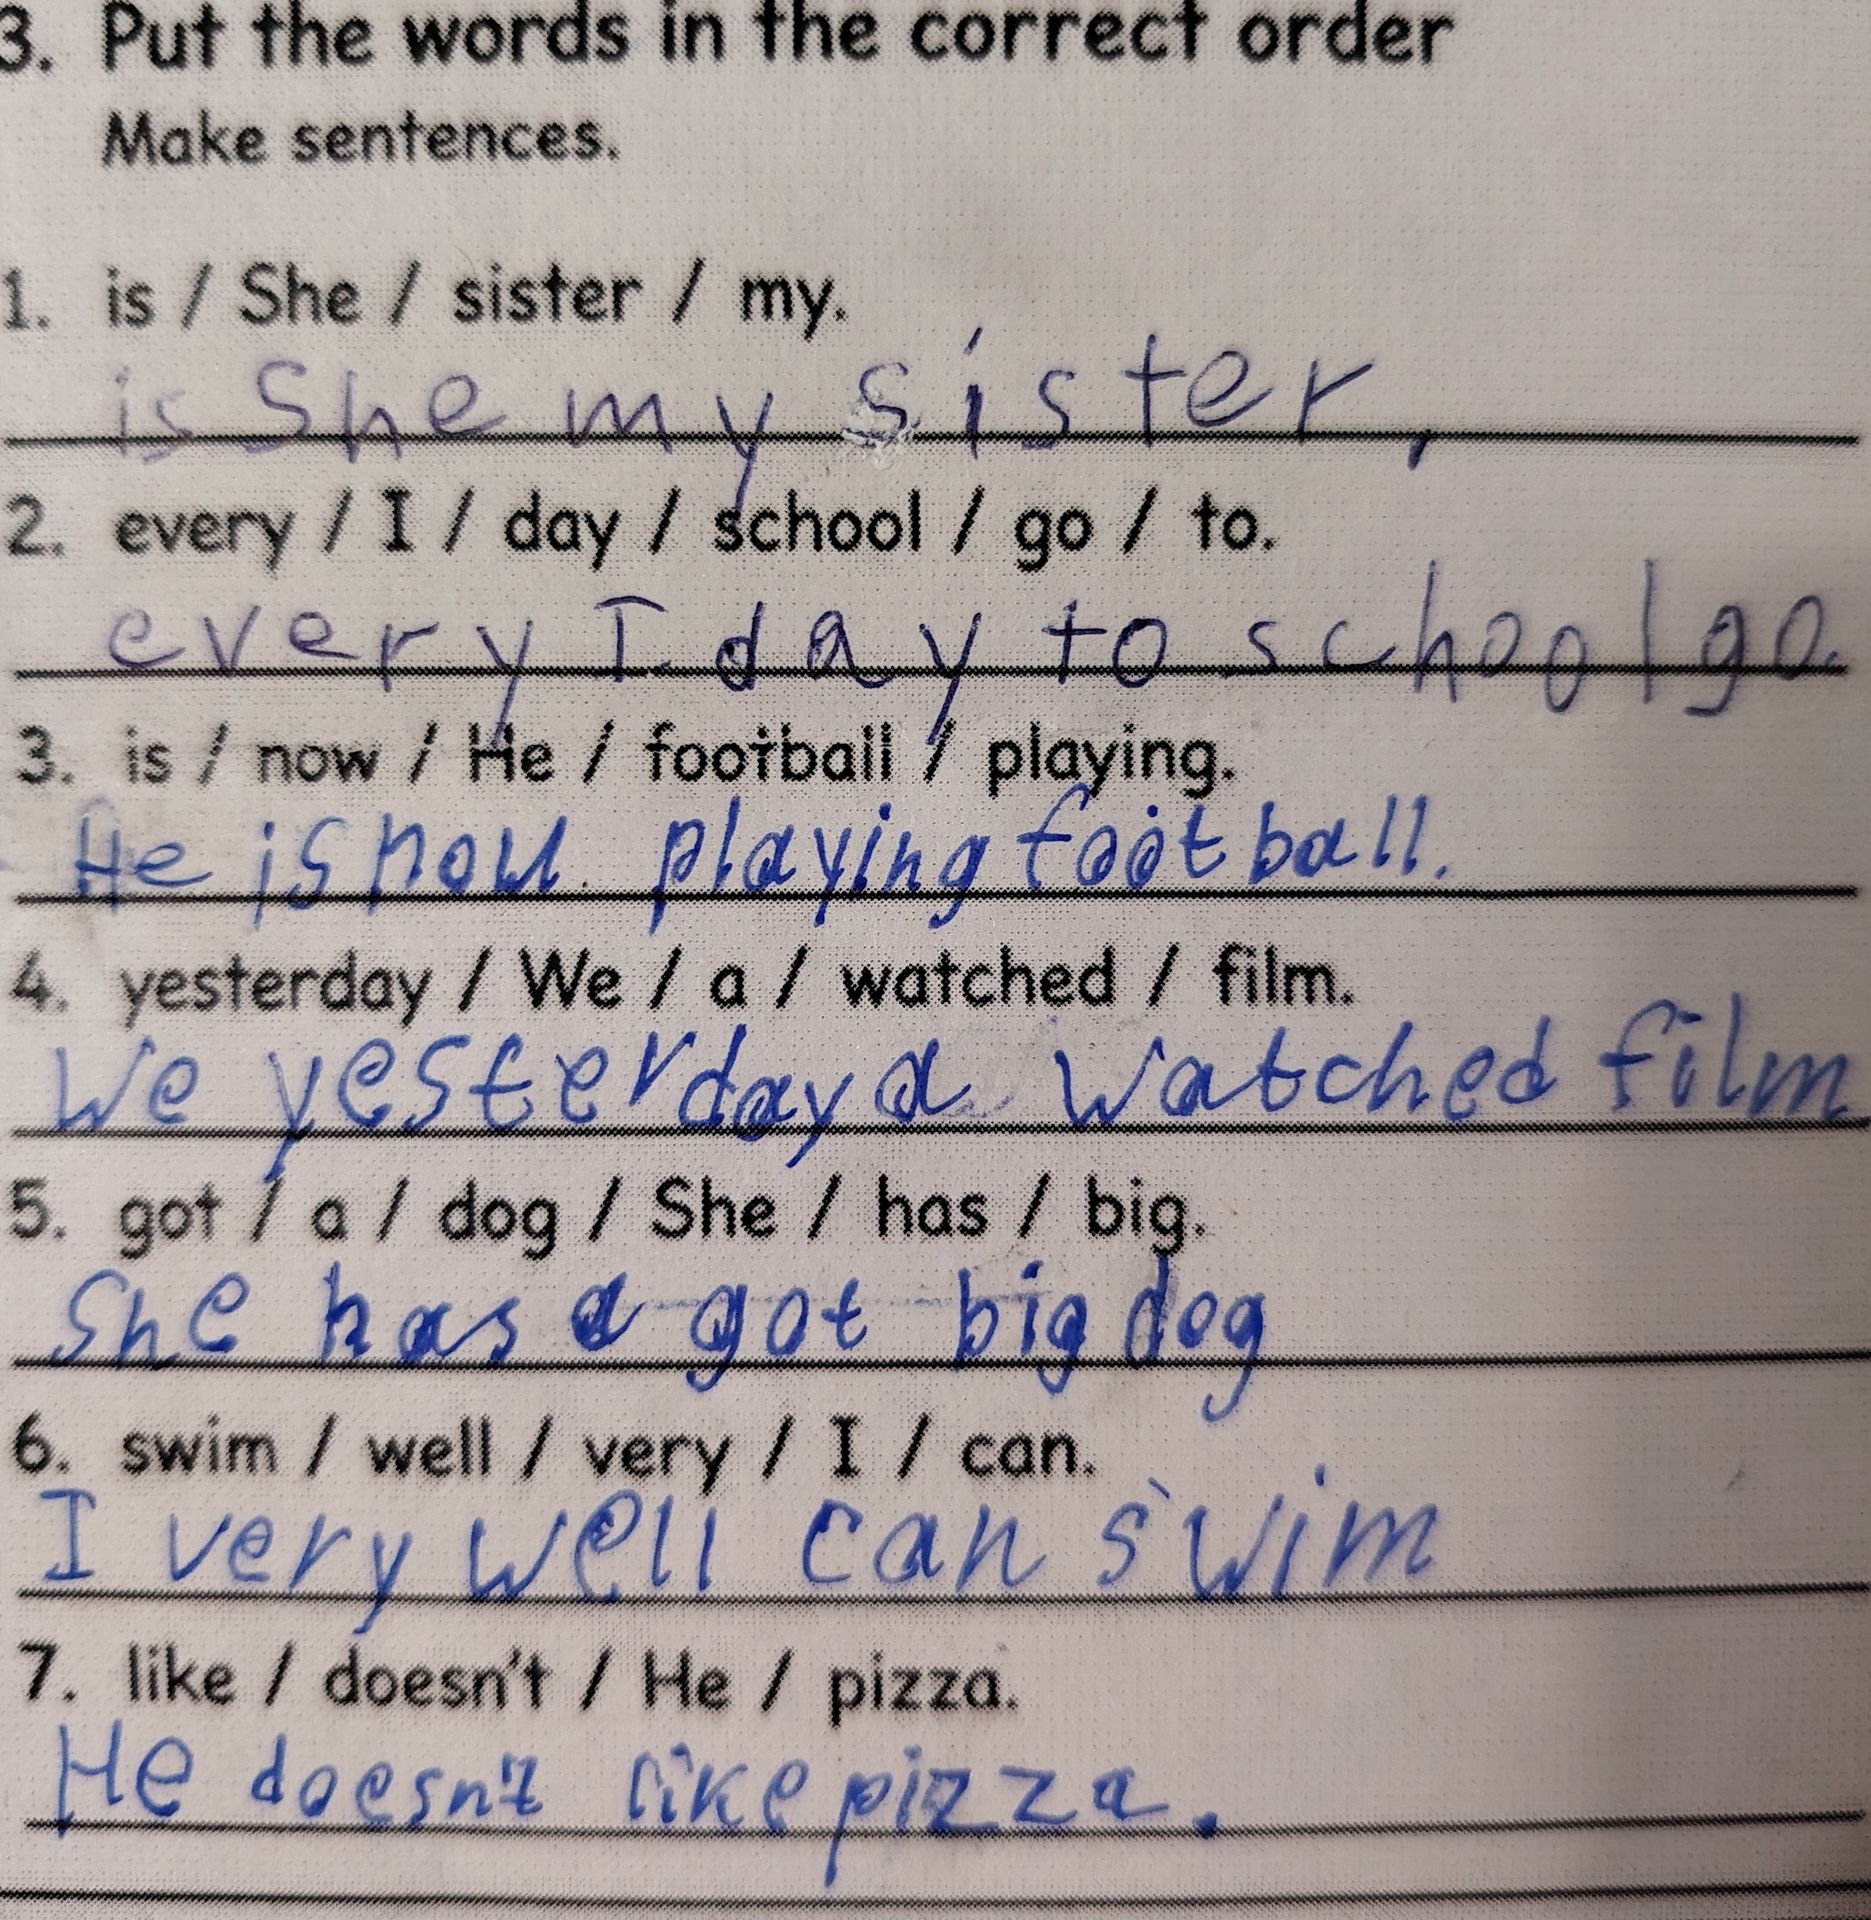 3. Put the words in the correct order
Make sentences.
1. is / She / sister / my.
is She my sister,
2. every / I / day / school / go / to.
every I day to school go.
3. is / now / He / football / playing.
He is now playing football.
4. yesterday / We / a / watched / film.
We yesterday a watched film
5. got / a / dog / She / has / big.
She has a got big dog
6. swim / well / very / I / can.
I very well can swim
7. like / doesn't / He / pizza.
He doesn't like pizza.